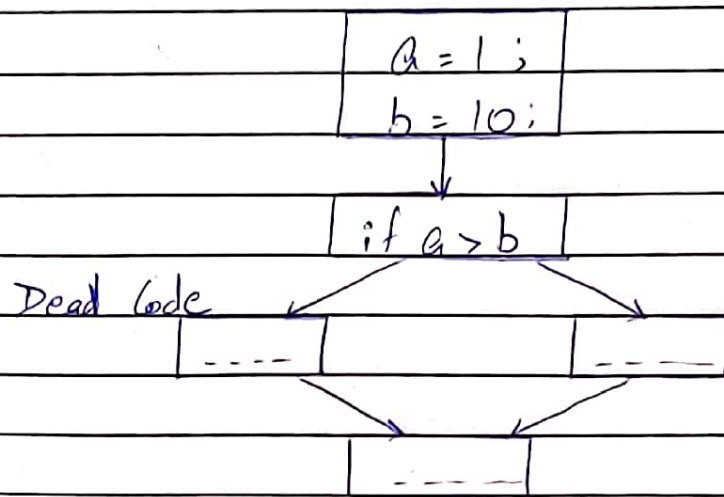 a = 1 ;
b = 10 ;
if a > b
Dead Code